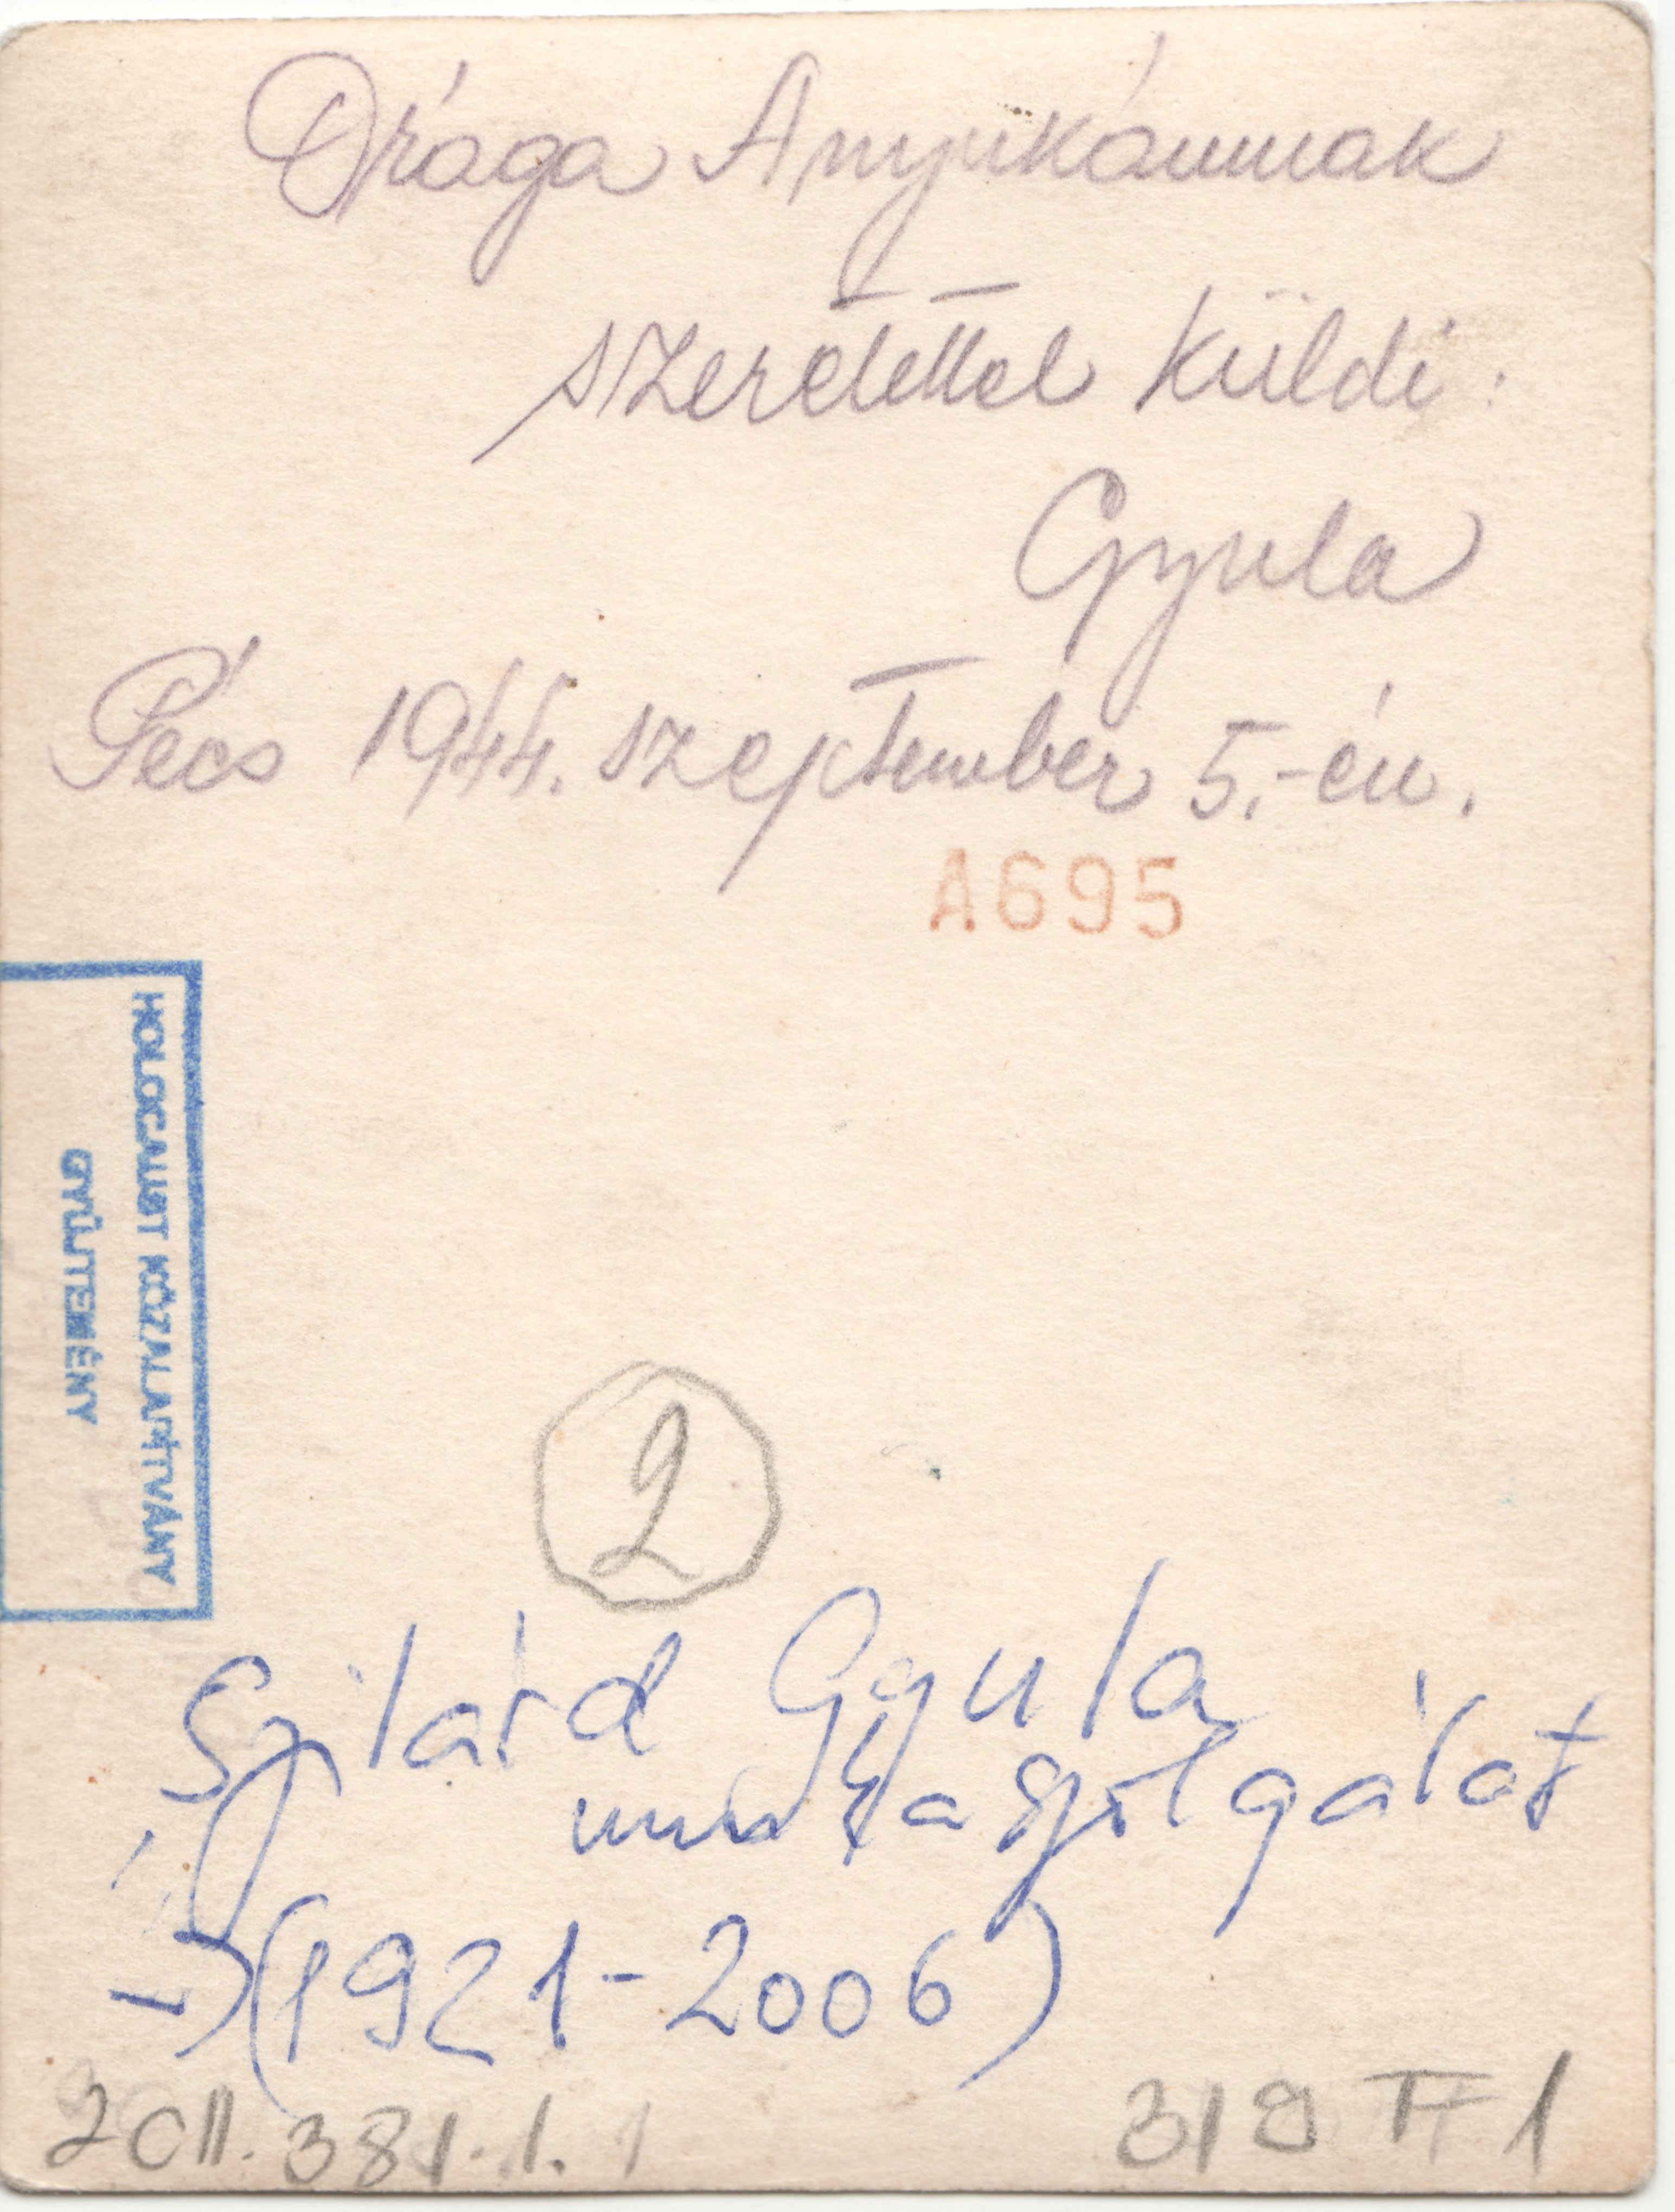 Drága Anyukámnak
szeretettel küldi:
Gyula
Pécs 1944. szeptember 5.-én.
A695
HOLOCAUST KÖZALAPÍTVÁNY
GYŰJTEMÉNY
2
Szilárd Gyula
munkaszolgálat
(1921-2006)
2011.381.1.1
319 1